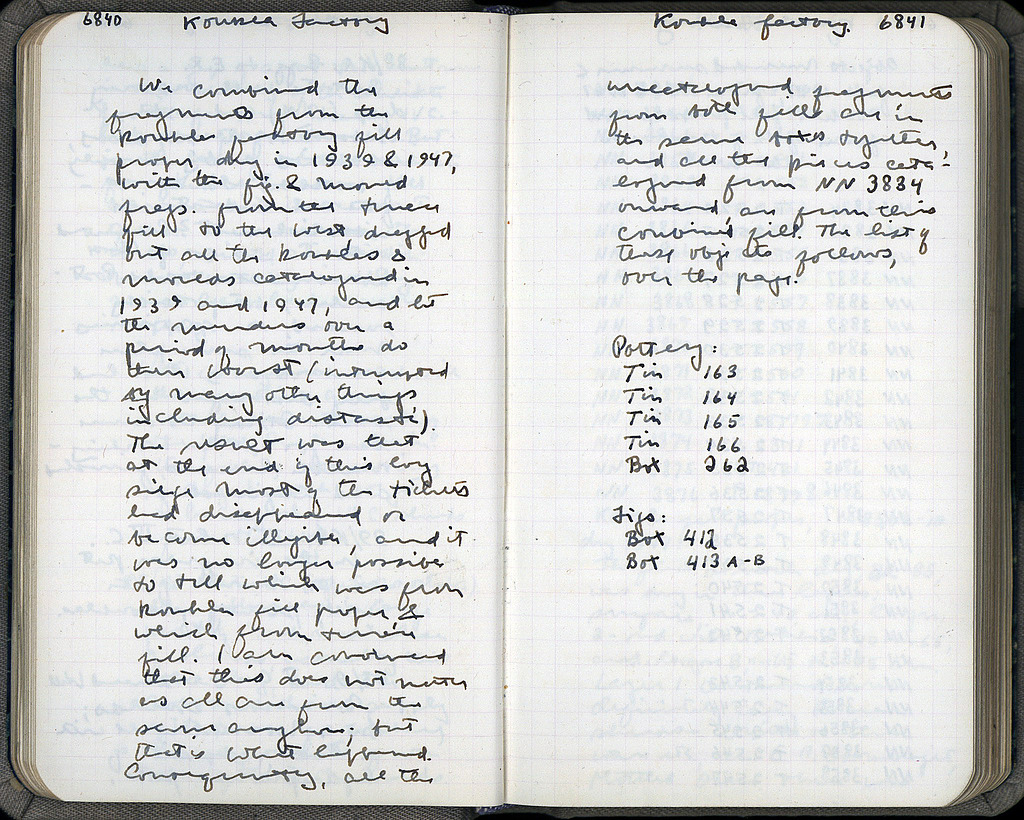 6840 Koukla factory
We combined the
fragments from the
Koukles factory fill
proper, dug in 1939 & 1947,
with the fig. & mould
frags. from the terrace
fill to the west dragged
out all the koukles &
moulds catalogued in
1939 and 1947, and let
the menders over a
period of months do
their worst (interrupted
by many other things
including distaste!).
The result was that
at the end of this long
siege most of the tickets
had disappeared or
become illegible, and it
was no longer possible
to tell which was from
Koukles fill proper &
which from terrace
fill. I am convinced
that this does not matter
as all are from the
same anyhow; but
that is what happened.
Consequently, all the
Koukla factory. 6841
uncatalogued fragments
from both fills are in
the same boxes together,
and all the pieces cata-
logued from NN 3834
onward, are from this
combined fill. The list of
these objects follows,
over the page.
Pottery:
Tin 163
Tin 164
Tin 165
Tin 166
Box 262
Figs:
Box 412
Box 413 A-B